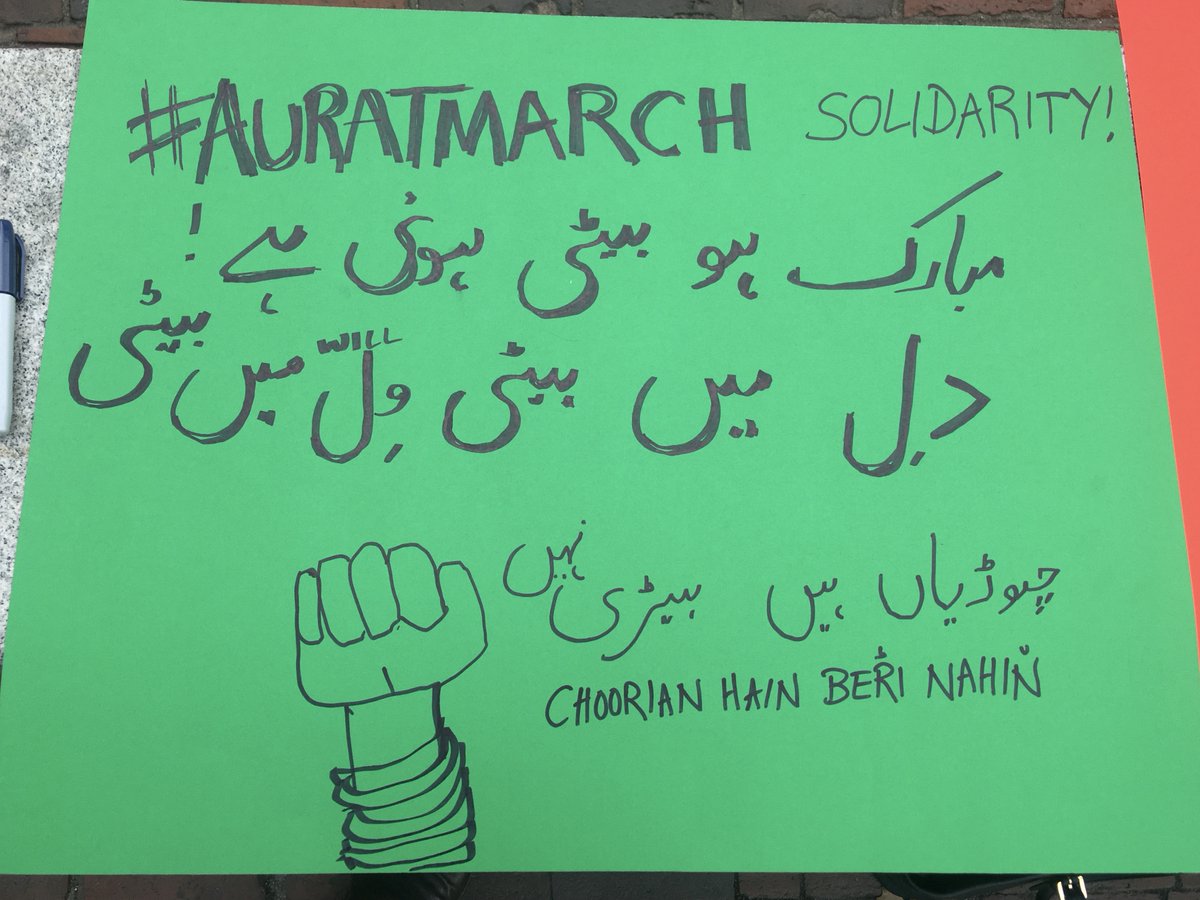 #AURATMARCH SOLIDARITY!
مبارک ہو بیٹی ہوئی ہے!
دِل میں بیٹی وِلّ WILL میں بیٹی
چوڈیاں ہیں بیڑی نہیں
CHOORIAN HAIN BERI NAHIN